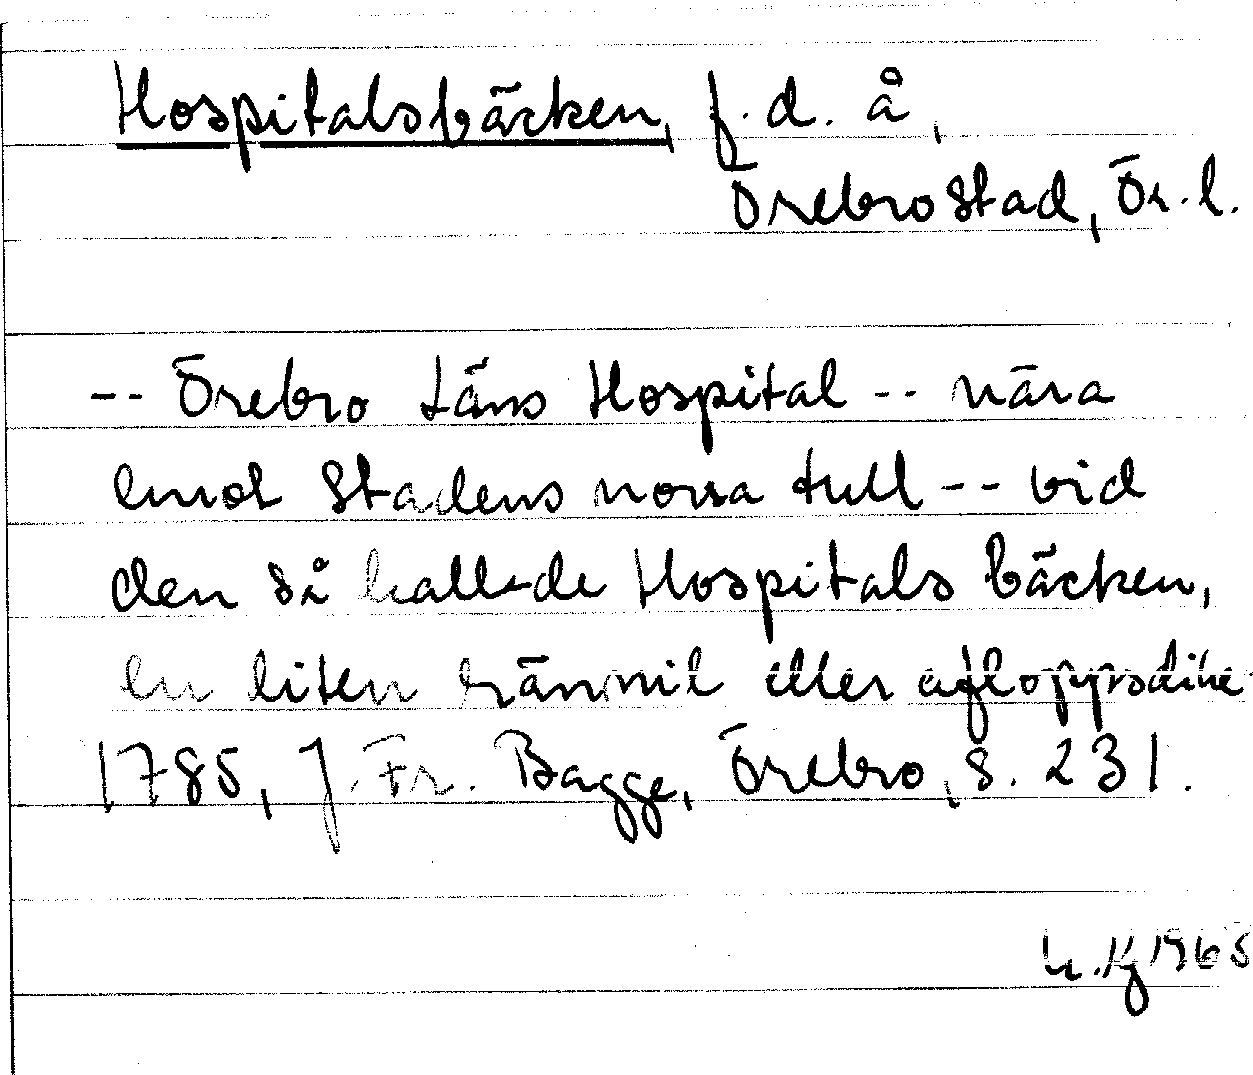 Hospitalsbäcken, f.d. å,
Örebro stad, Ör. l.
-- Örebro Läns Hospital -- nära
emot Stadens norra tull -- vid
den så kallade Hospitals bäcken,
en liten rännil eller afloppsdike
1785, J. Fr. Bagge, Örebro, s. 231.
1965